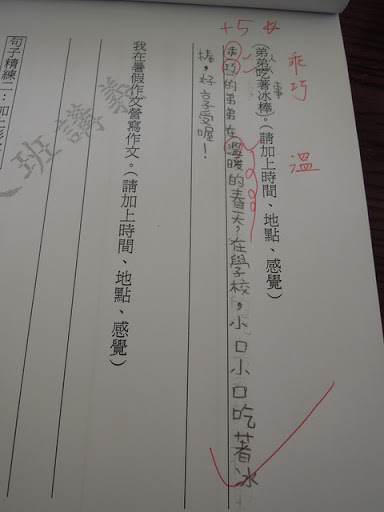 +5
乖巧
溫
人 事
(弟弟吃著冰棒)。(請加上時間、地點、感覺)
乖巧的弟弟在溫暖的春天,在學校,小口小口吃著冰
棒,好享受喔!
我在暑假作文營寫作文。(請加上時間、地點、感覺)
班講義
句子精練二: